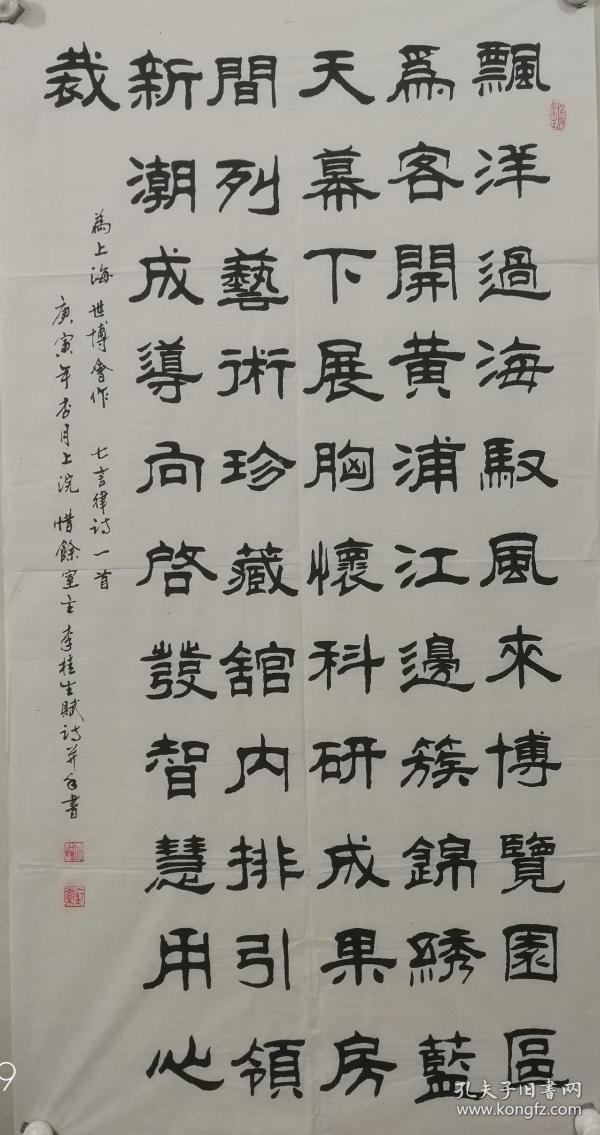 飄洋過海馭風來博覽園區
為客開黃浦江邊簇錦綉藍
天幕下展胸懷科研成果房
間列藝術珍藏館內排引領
新潮成導向啓發智慧用心
裁
為上海世博會作 七言律詩一首
庚寅年杏月上浣 惜餘室主李桂生賦詩并自書
孔夫子旧書网
www.kongfz.com
9